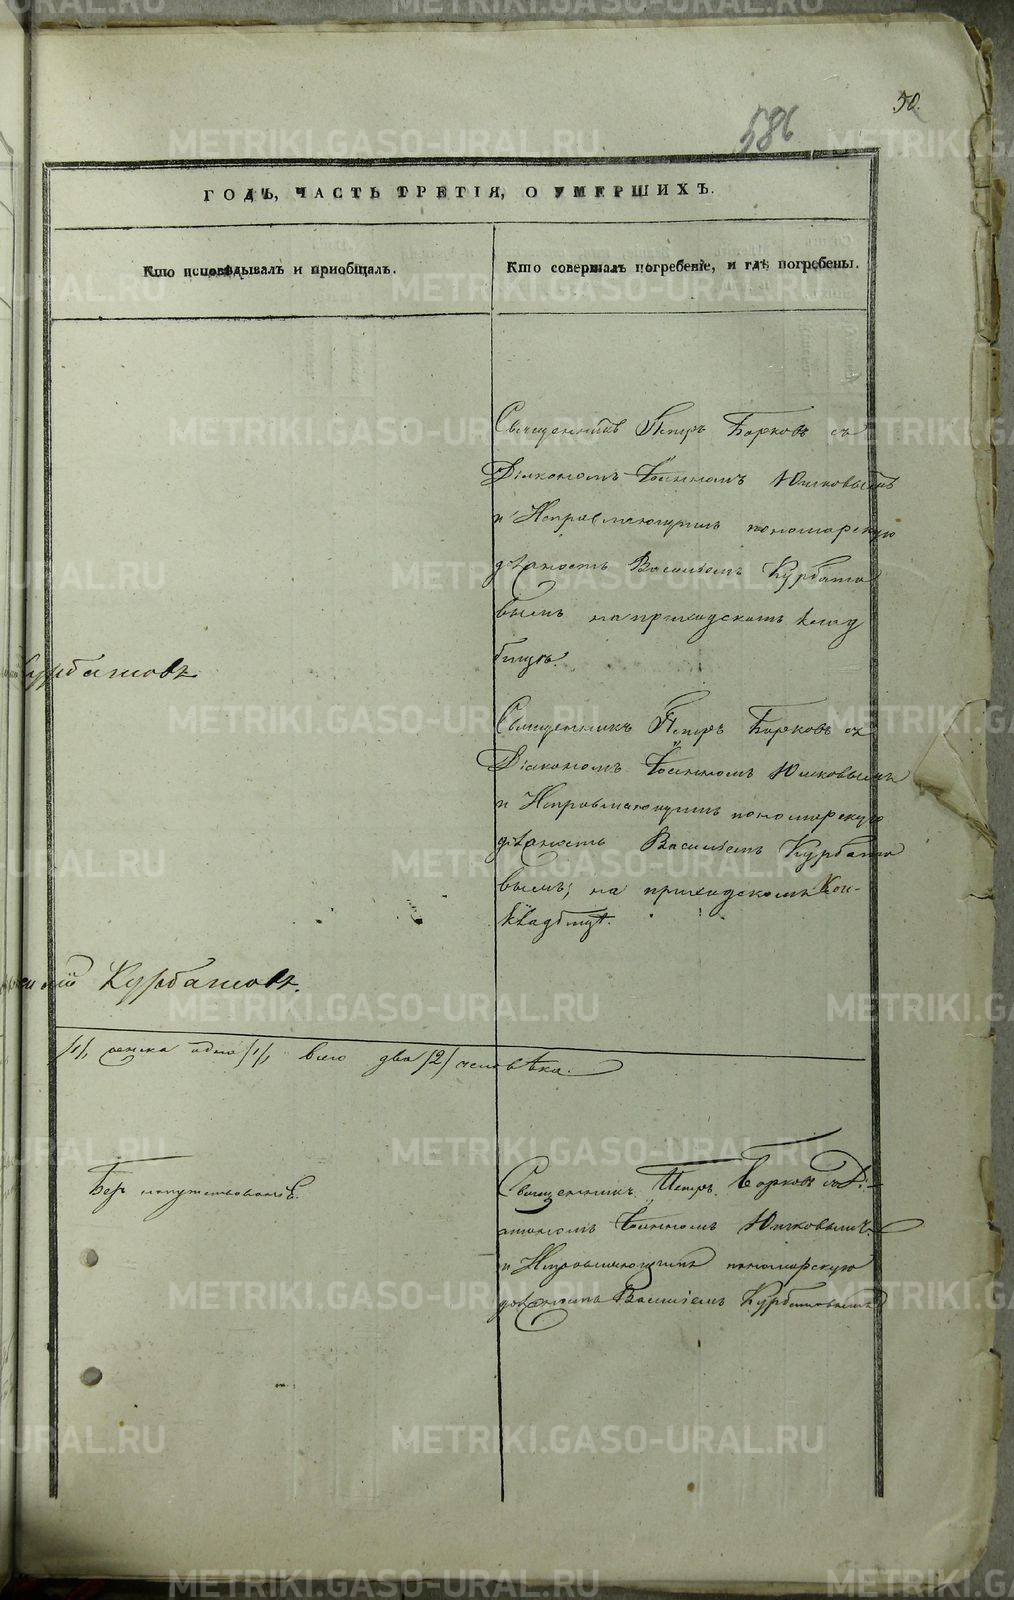 50.
586
ГОДЪ, ЧАСТЬ ТРЕТІЯ, О УМЕРШИХЪ.
Кто исповѣдывалъ и пріобщалъ.
Кто совершалъ погребеніе, и гдѣ погребены.
Священникъ Петръ Борковъ съ
Діякономъ Іоанномъ Юшковымъ
и Исправляющимъ пономарскую
должность Василіемъ Курбато
вымъ на приходскомъ клад
бищѣ.
Курбатовъ
Священникъ Петръ Борковъ съ
Діякономъ Іоанномъ Юшковымъ
и Исправляющимъ пономарскую
должность Василіемъ Курбато
вымъ, на приходскомъ
кладбищѣ.
Курбатовъ.
/1/, женска одна /1/, всего два /2/ человѣка.
Безъ напутствованія.
Священникъ Петръ Борковъ съ Ді-
акономъ Іоанномъ Юшковымъ
и Исправляющимъ пономарскую
должность Василіемъ Курбатовымъ
METRIKI.GASO-URAL.RU